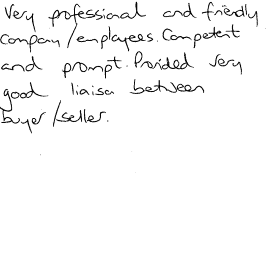 Very professional and friendly
company/employees. Competent
and prompt. Provided very
good liaison between
buyer/seller.